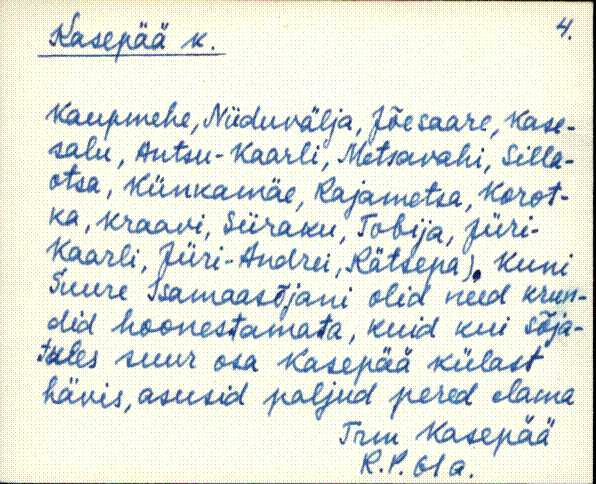 4.
Kasepää k.
Kaupmehe, Niiduvälja, Jõesaare, Kase-
salu, Antsu-Kaarli, Metsavahi, Silla-
otsa, Künkamäe, Rajametsa, Korot-
ka, Kraavi, Siiraku, Tobija, Jüri-
Kaarli, Jüri-Andrei, Rätsepa). Kuni
Suure Isamaasõjani olid need krun-
did hoonestamata, kuid kui sõja-
tules suur osa Kasepää külast
hävis, asusid paljud pered elama
Trm Kasepää
R.P. 61 a.